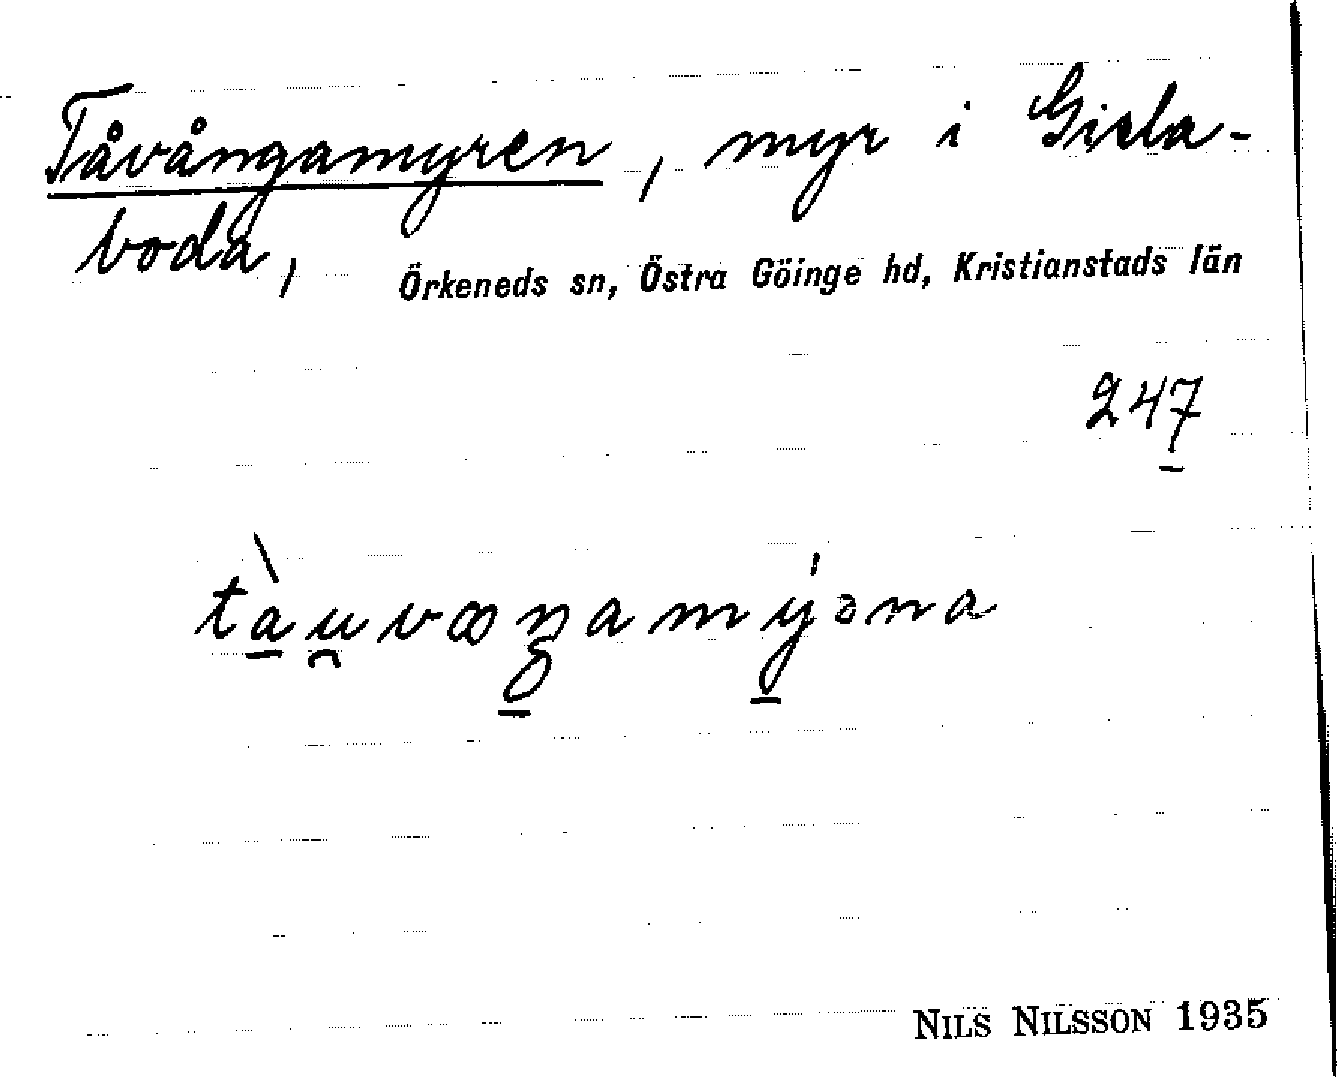 Tåvångamyren, myr i Gisla-
boda,
Örkeneds sn, Östra Göinge hd, Kristianstads län
247
NILS NILSSON 1935